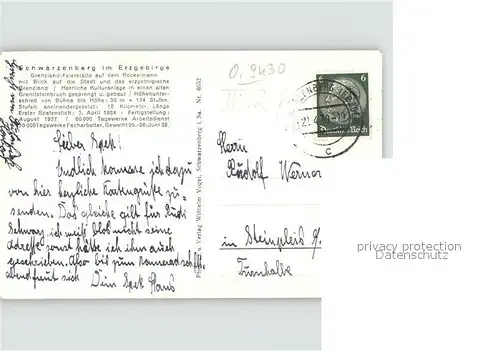 Schwarzenberg im Erzgebirge
Grenzland-Feierstätte auf dem Rockelmann
mit Blick auf die Stadt und das erzgebirgische
Grenzland / Herrliche Kulturanlage in einen alten
Granitsteinbruch gesprengt u. gebaut / Höhenunter-
schied von Bühne bis Höhe: 30 m • 134 Stufen.
Stufen aneinandergesetzt: 10 Kilometer Länge
Erster Spatenstich: 7. April 1934 - Fertigstellung:
August 1937 / 60000 Tagewerke Arbeitsdienst
20000 Tagewerke Facharbeiter. Geweiht 25.-26. Juni 38.
Lieber Spek!
Endlich komme ich dazu
von hier herzliche Kartengrüße zu
senden. Das gleiche gilt für Rudi
Schwarz, ich weiß bloß nicht seine
Adresse, sonst hätte ich ihm auch
geschrieben. Also bis zum Kameradschafts-
abend freut sich Dein Spek Hans
Verlag Wilhelm Vogel, Schwarzenberg i. Sa. Nr. 4052
0,9430
6 6
Deutsches Reich
C
Herrn
Rudolf Werner
in Steinpleis
Turnhalle
privacy protection
Datenschutz